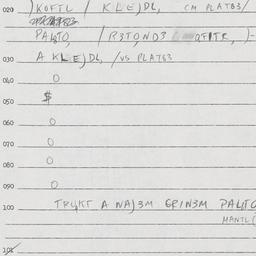 020 )KOFTL / KLE)DL, CM PLAT83/
PALTO, / R3TO,ND3 QFITR, )-
030 A KLE)DL, /VS PLAT83
040 O
050 $
060 O
070 O
080 O
090 O
100 TRYKT A NAJ3M GRIN3M PALTO
MANTL(
101